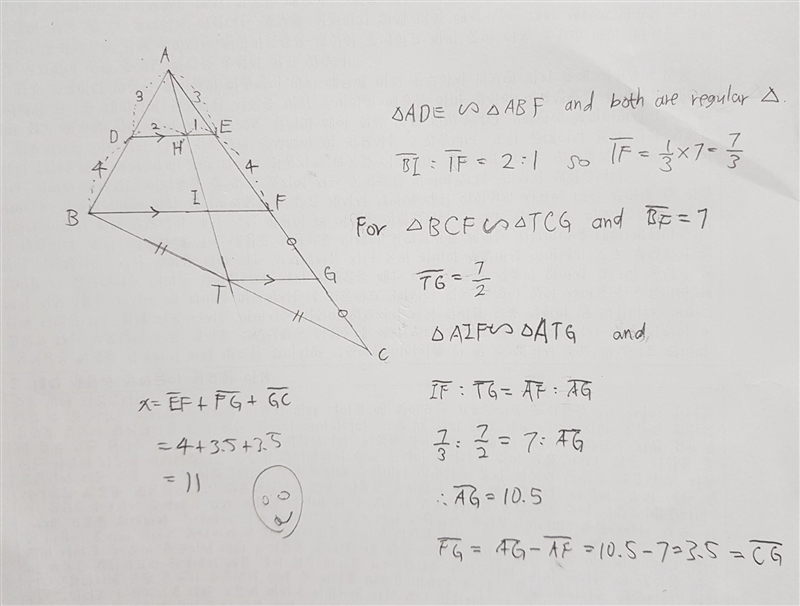 A
3 3
D 2 1 E
H
4 4
B I F
T G
C
△ADE ∽ △ABF and both are regular △.
BI : IF = 2 : 1 so IF = 1/3 × 7 = 7/3
For △BCF ∽ △TCG and BF = 7
TG = 7/2
△AIF ∽ △ATG and
IF : TG = AF : AG
7/3 : 7/2 = 7 : AG
∴ AG = 10.5
FG = AG - AF = 10.5 - 7 = 3.5 = CG
x = EF + FG + GC
= 4 + 3.5 + 3.5
= 11